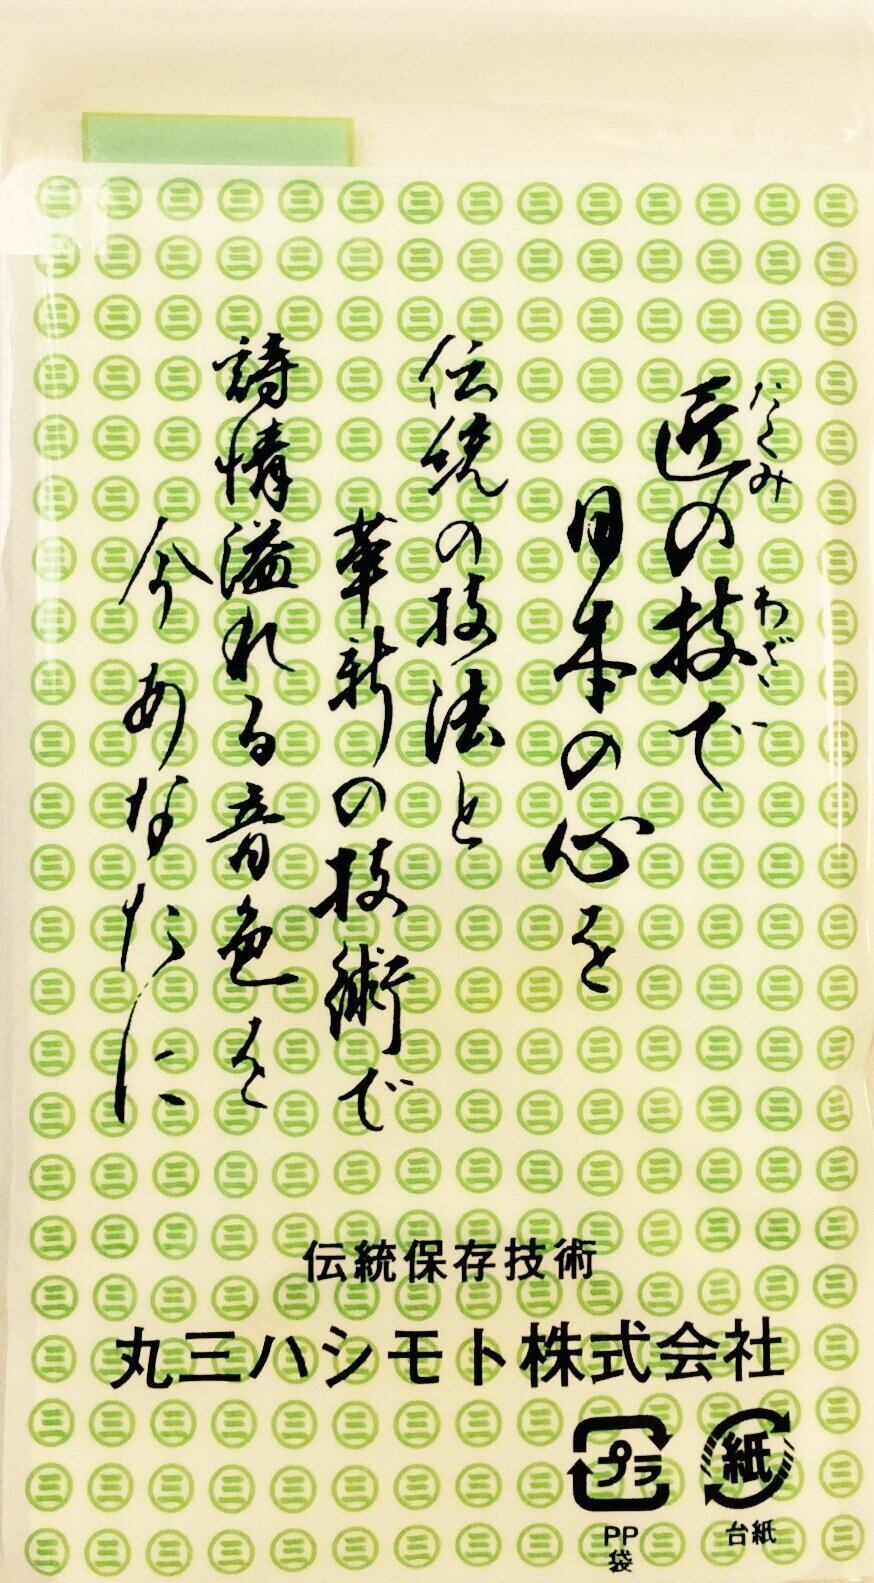 匠の技で
たくみ わざ
日本の心を
伝統の技法と
革新の技術で
詩情溢れる音色を
今あなたに
伝統保存技術
丸三ハシモト株式会社
プラ
紙
PP
袋
台紙